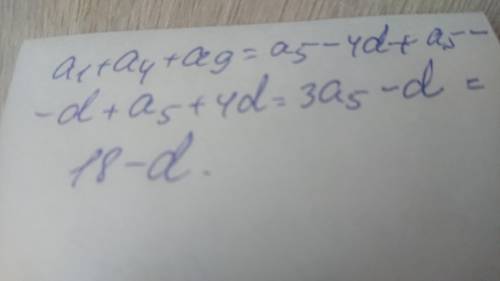 a₁+a₄+a₉=a₅-4d+a₅-
-d+a₅+4d=3a₅-d=
18-d.